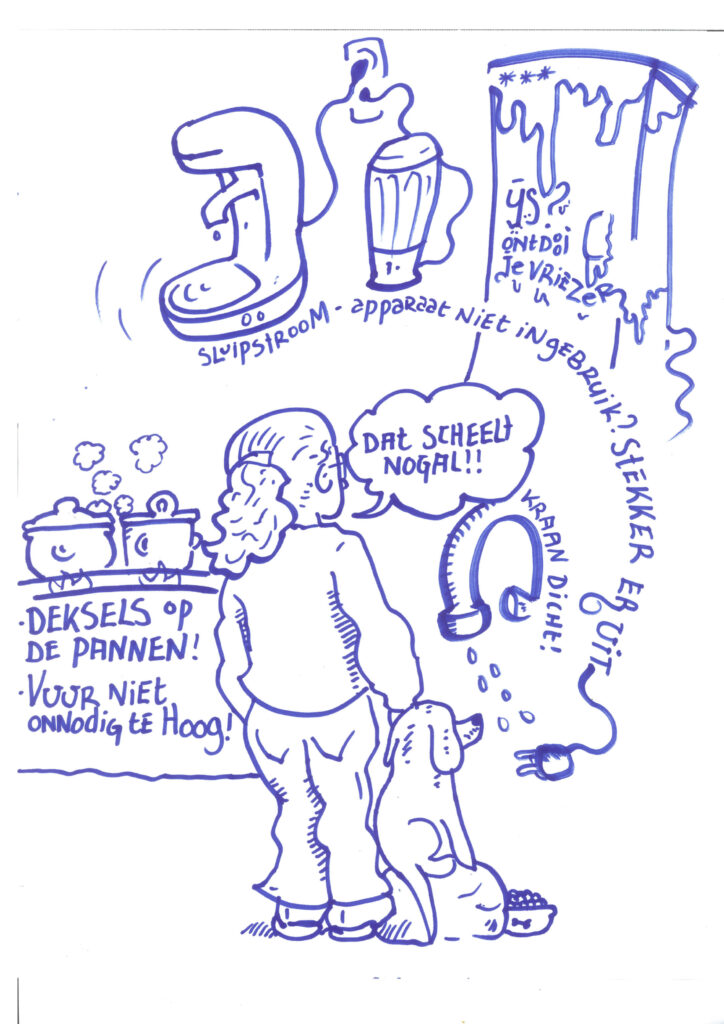 ***
ijs?
ontdooi
je vriezer
SLUIPSTROOM - apparaat NiET iN gEBRUiK? STEKKER ER UiT
DAt SCHEELt
NOGAL!!
KRAAN DiCHT!
·DEKSELS OP
DE PANNEN!
·VUUR NiET
ONNODig tE HOOg!